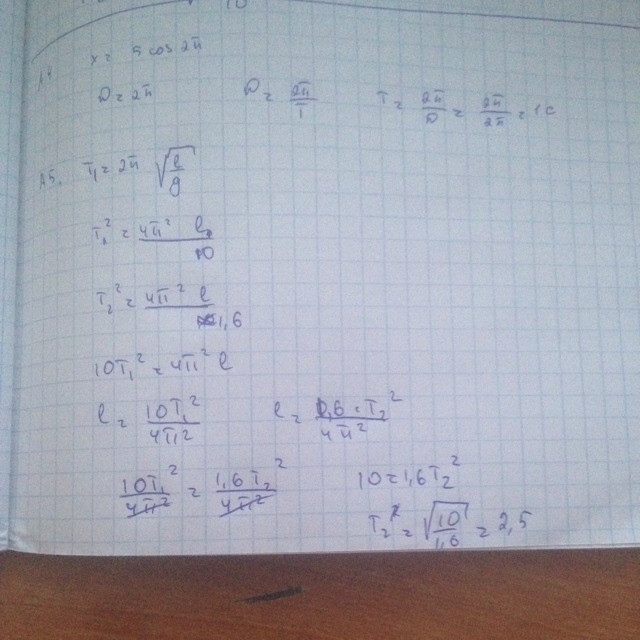 A4 x = 5 cos 2π
ω = 2π ω = 2π/T T = 2π/ω = 2π/2π = 1 с
A5. T₁ = 2π √(l/g)
T₁² = 4π² l/10
T₂² = 4π² l/1,6
10T₁² = 4π² l
l = 10T₁²/4π² l = 1,6 · T₂²/4π²
10T₁²/4π² = 1,6T₂²/4π² 10 = 1,6T₂²
T₂ = √(10/1,6) = 2,5